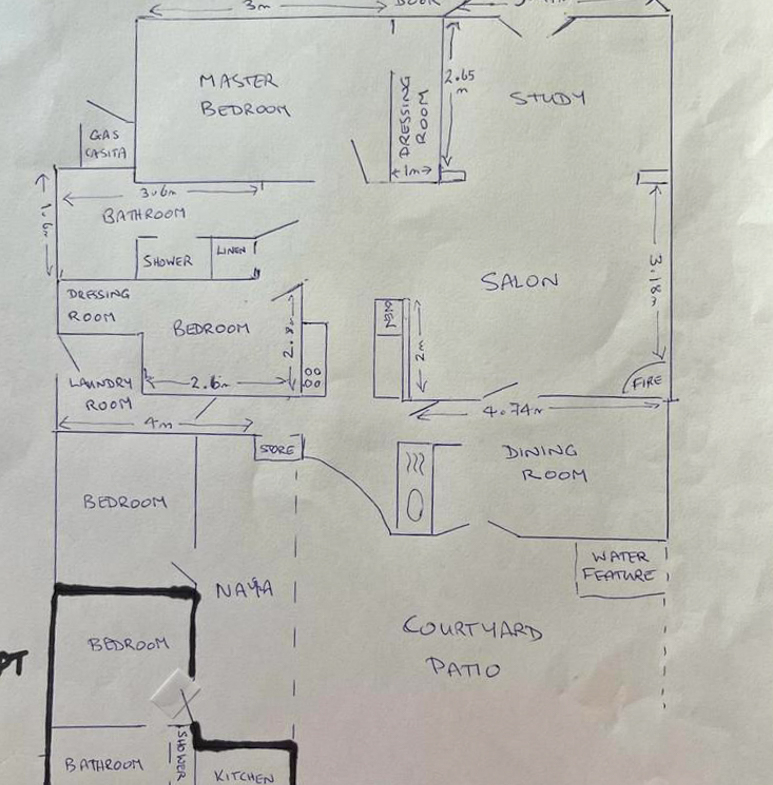 3m
DOOR
MASTER
BEDROOM
DRESSING
ROOM
2.65
m
STUDY
GAS
CASITA
1m
3.6m
1.6m
BATHROOM
SHOWER
LINEN
3.18m
SALON
DRESSING
ROOM
BEDROOM
2.8m
OVEN
2m
LAUNDRY
ROOM
2.6m
FIRE
4.74m
4m
STORE
DINING
ROOM
BEDROOM
WATER
FEATURE
NAYA
BEDROOM
COURTYARD
PATIO
PT
BATHROOM
SHOWER
KITCHEN